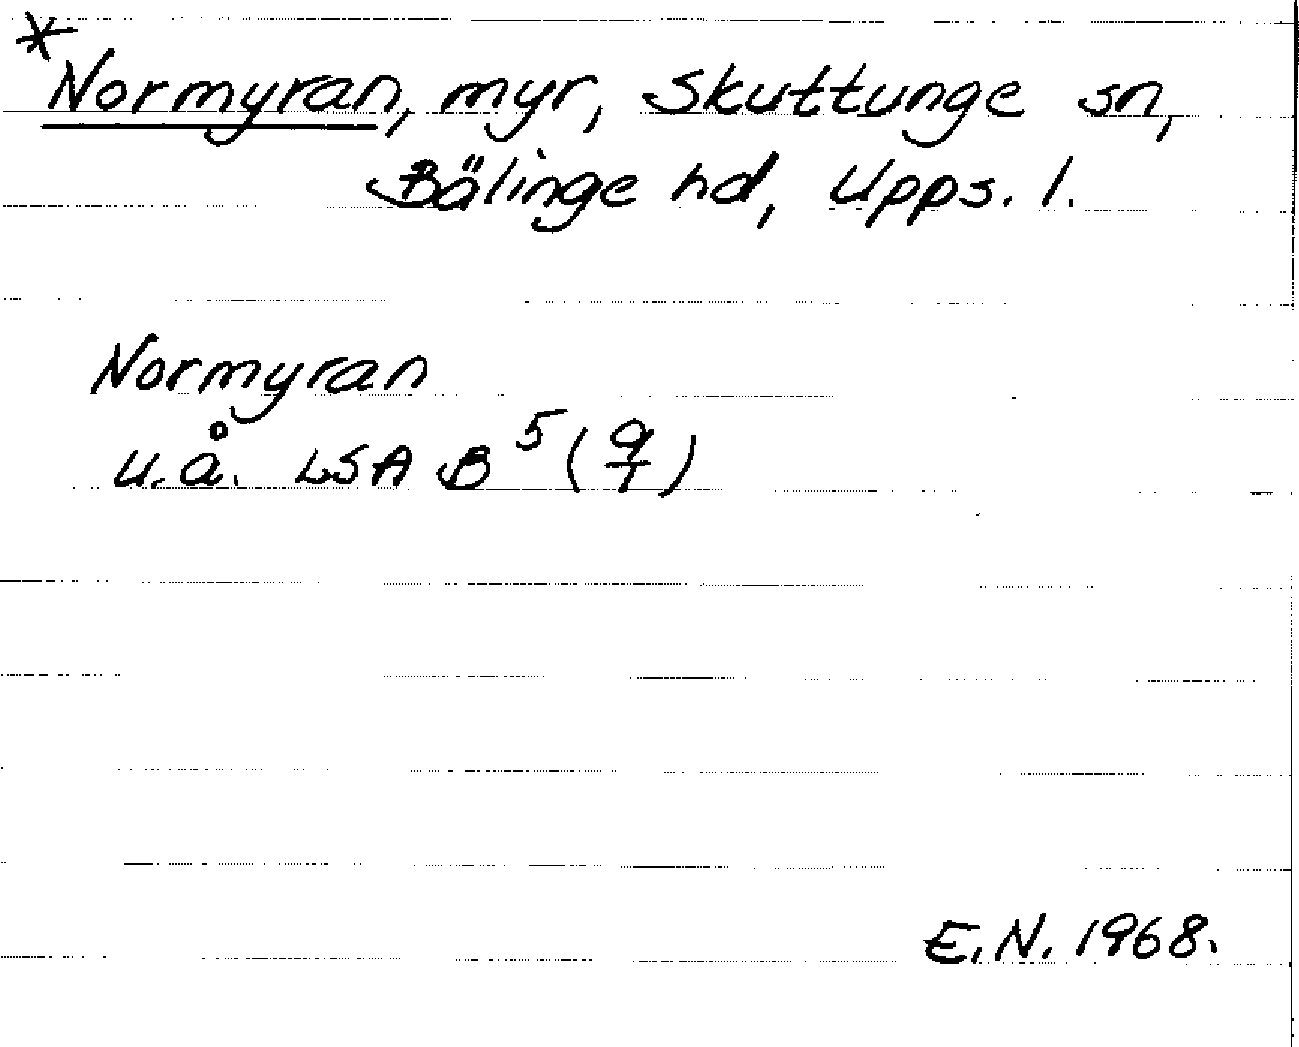 * Normyran, myr, Skuttunge sn,
Bälinge hd, Upps. l.
Normyran
u.å. LSA B 5 (9/1)
E.N. 1968.